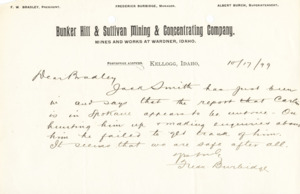 F. W. BRADLEY, PRESIDENT. FREDERICK BURBIDGE, MANAGER. ALBERT BURCH, SUPERINTENDENT.
Bunker Hill & Sullivan Mining & Concentrating Company.
MINES AND WORKS AT WARDNER, IDAHO.
KELLOGG, IDAHO, 10/17/99
Dear Bradley
Jack Smith has just been
in and says that the report that
is in Spokane appears to be untrue. On
hunting him up & making enquiries about
him he failed to get track of him.
It seems that we are safe after all.
Yours truly
Fred Burbidge